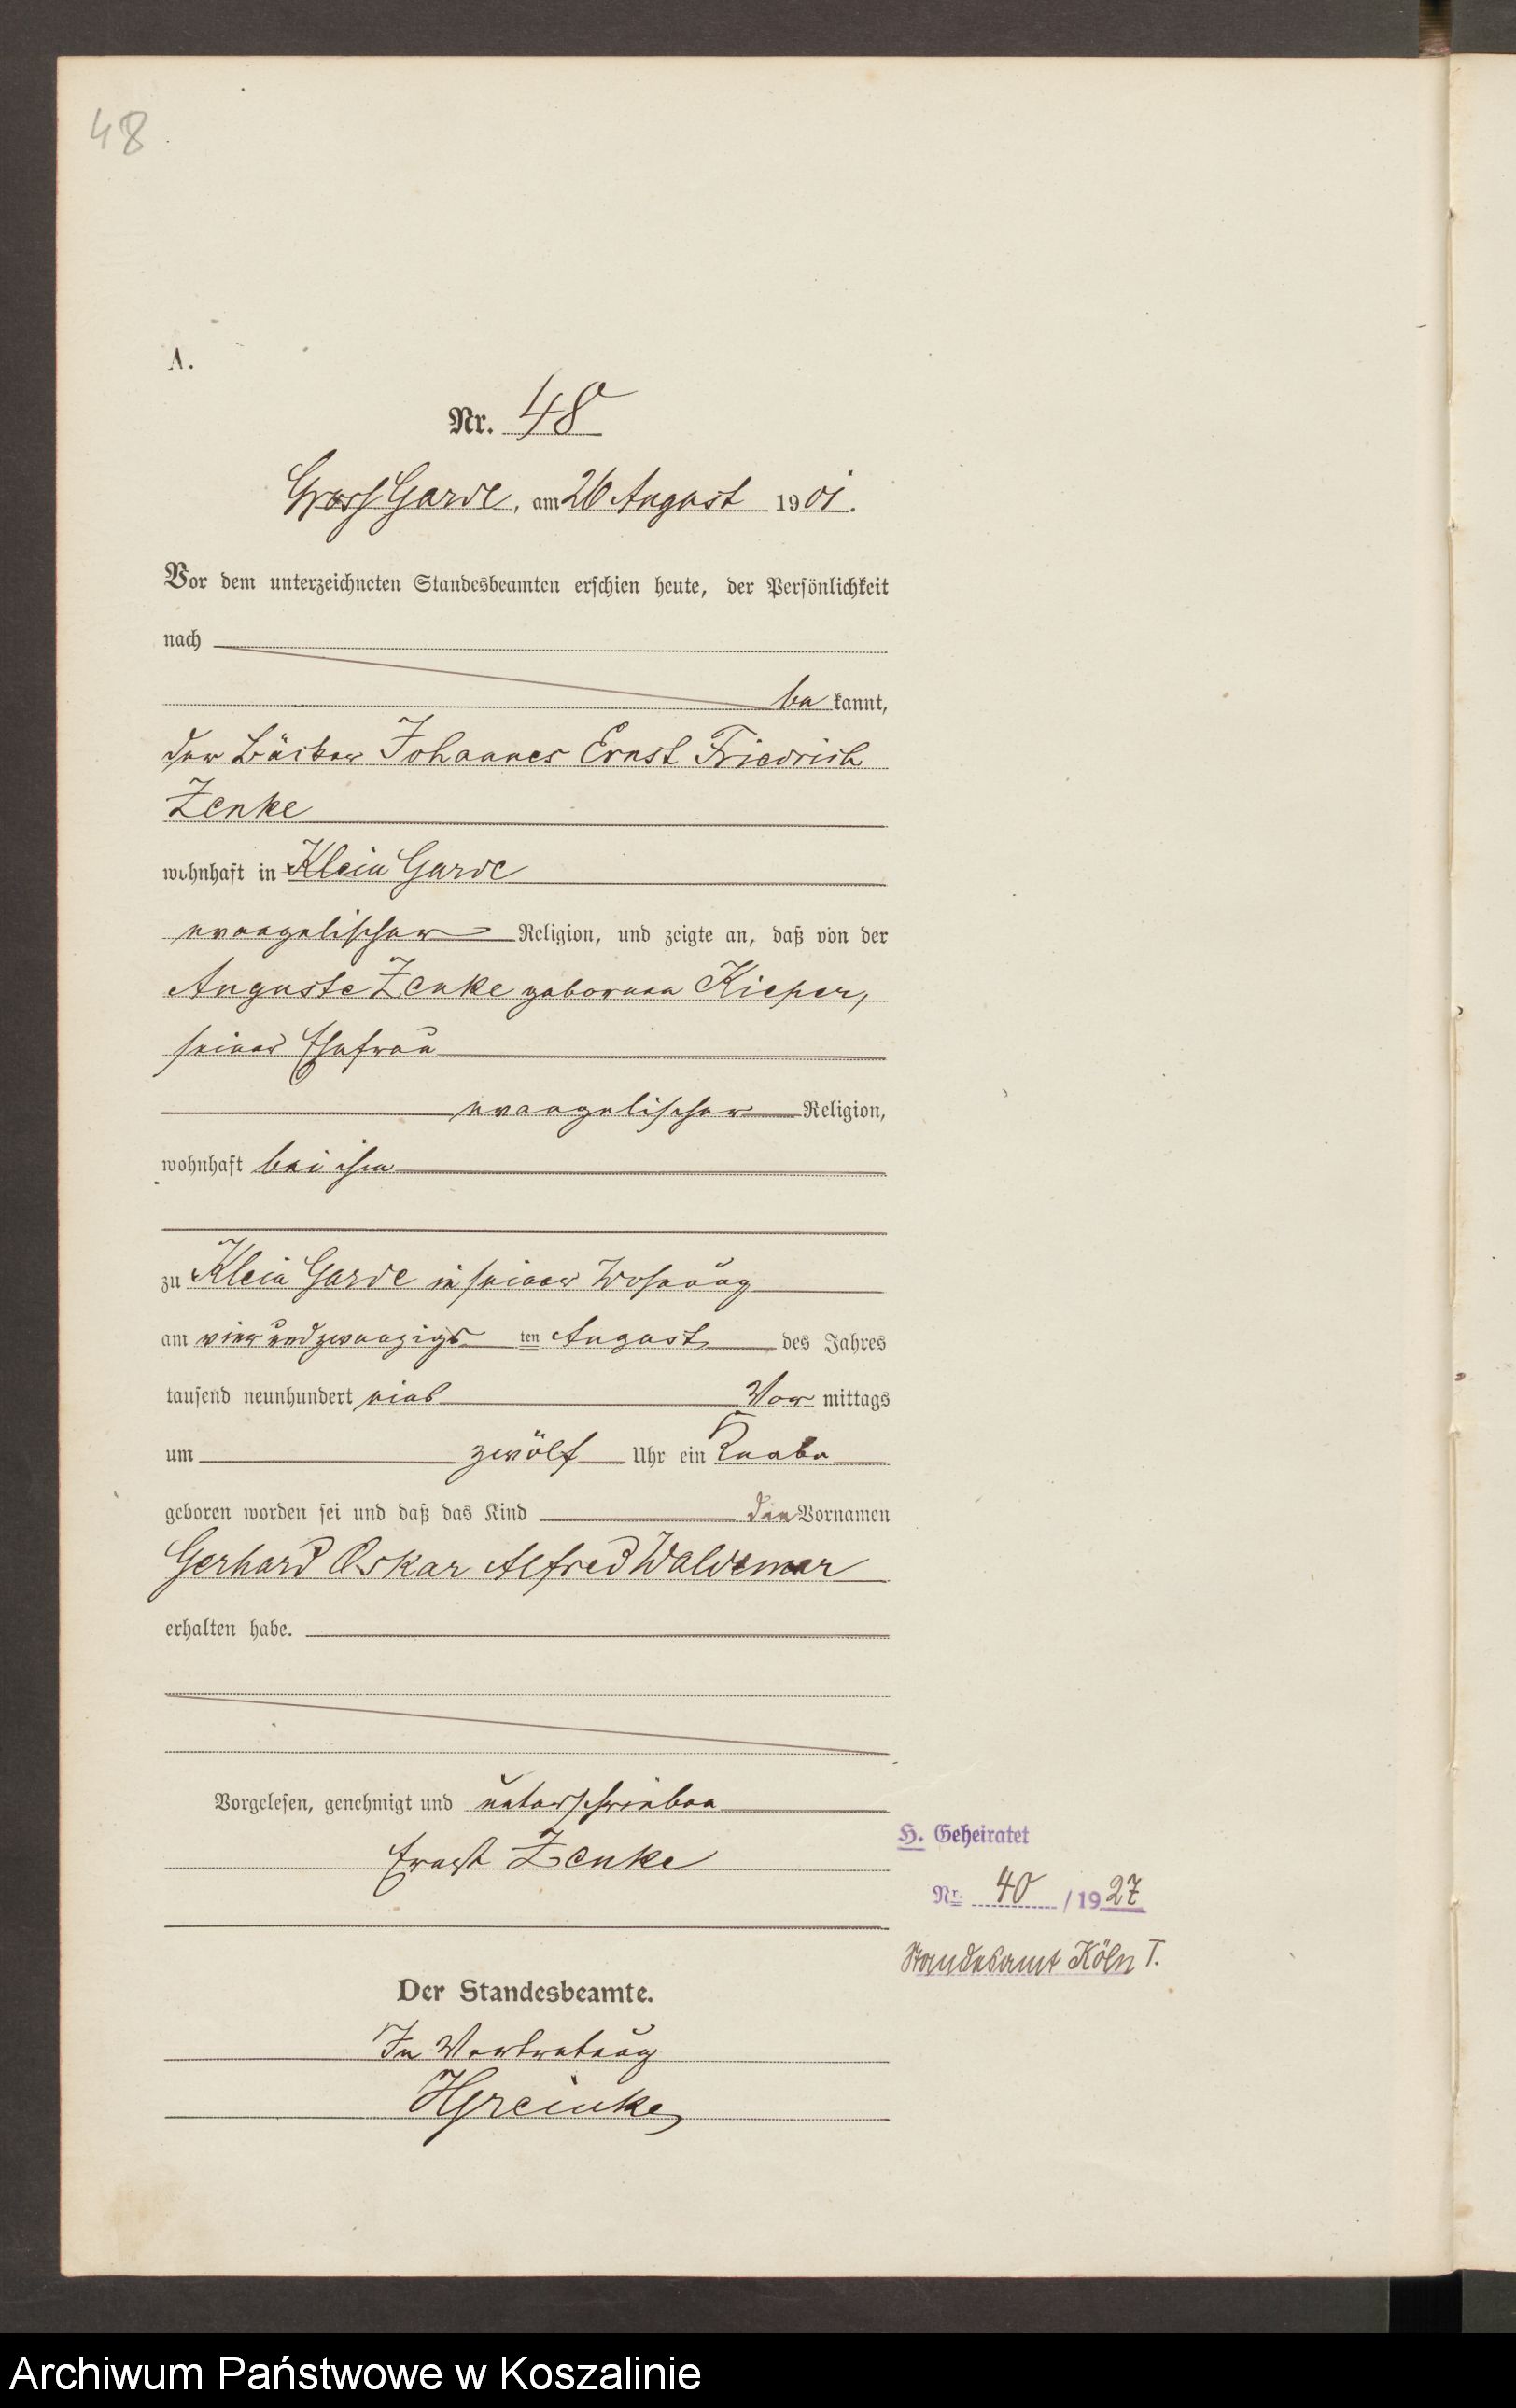 48
A.
Nr. 48
Gross Garde, am 26 August 1901.
Vor dem unterzeichneten Standesbeamten erschien heute, der Persönlichkeit
nach
be kannt,
der Bäcker Johannes Ernst Friedrich
Zenke
wohnhaft in Klein Garde
evangelischer Religion, und zeigte an, daß von der
Auguste Zenke geborenen Kieper,
seiner Ehefrau
evangelischer Religion,
wohnhaft bei ihm
zu Klein Garde in seiner Wohnung
am vier und zwanzigs ten August des Jahres
tausend neunhundert eins Vor mittags
um zwölf Uhr ein Knabe
geboren worden sei und daß das Kind den Vornamen
Gerhard Oskar Alfred Waldemar
erhalten habe.
Vorgelesen, genehmigt und unterschrieben
Ernst Zenke
H. Geheiratet
Nr. 40 / 1927
Standesamt Köln I.
Der Standesbeamte.
In Vertretung
HGreinke
Archiwum Państwowe w Koszalinie